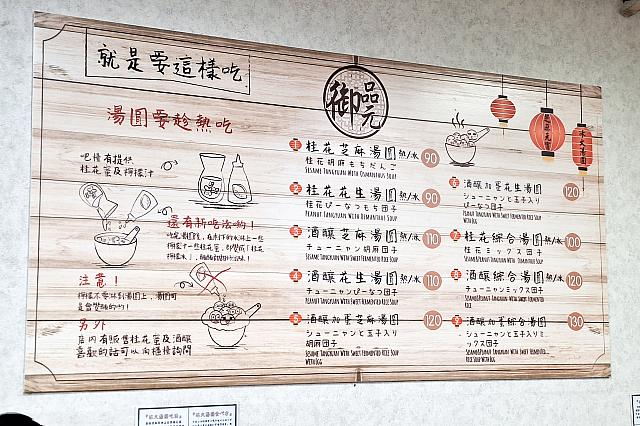 就是要這樣吃
湯圓要趁熱吃
吧檯有提供
桂花蜜及檸檬汁
還有新吃法喲!
注意!
檸檬不要淋到湯圓上,湯圓可
是會變酸的喲!
另外
店內有販售桂花蜜及酒釀
喜歡的話可以向櫃檯詢問
御品元
桂花芝麻湯圓 熱/冰 90
桂花胡麻もちだんご
Sesame Tangyuan With Osmanthus Soup
桂花花生湯圓 熱/冰 90
桂花ぴーなつもち団子
Peanut Tangyuan With Osmanthus Soup
酒釀芝麻湯圓 熱/冰 110
チューニャン胡麻団子
Sesame Tangyuan With Sweet Fermented Rice Soup
酒釀花生湯圓 熱/冰 110
チューニャンぴーなつ団子
Peanut Tangyuan With Sweet Fermented Rice Soup
酒釀加蛋芝麻湯圓 120
シューニャンと玉子入り
胡麻団子
Sesame Tangyuan With Sweet Fermented Rice Soup
With Egg
酒釀加蛋花生湯圓 120
シューニャンと玉子入り
ぴーなつ団子
Peanut Tangyuan With Sweet Fermented Rice Soup
With Egg
桂花綜合湯圓 熱/冰 100
桂花ミックス団子
Sesame&Peanut Tangyuan With Osmanthus Soup
酒釀綜合湯圓 熱/冰 120
チューニャンミックス団子
Sesame&Peanut Tangyuan With Sweet Fermented Rice
Soup
酒釀加蛋綜合湯圓 130
シューニャンと玉子入りミ
ックス団子
Sesame&Peanut Tangyuan With Sweet Fermented
Rice Soup With Egg
冰火湯圓